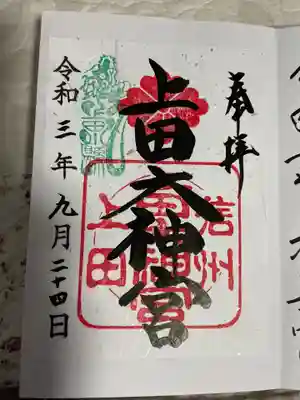 奉拝
上田大神宮
信州
上田
令和三年九月二十四日